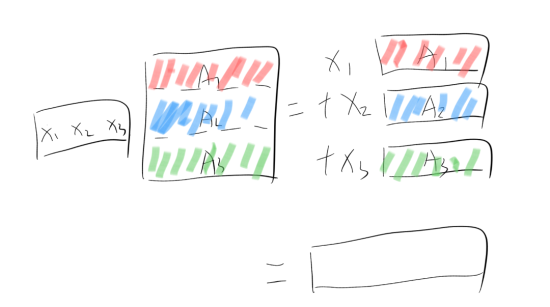 x₁ x₂ x₃
A₁
A₂
A₃
=
x₁ A₁
+ x₂ A₂
+ x₃ A₃
=